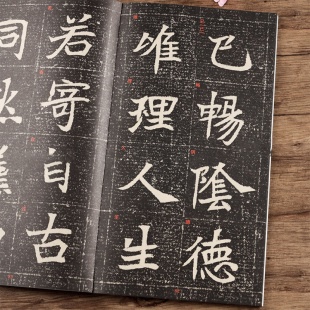 已暢陰德
唯理人生
若寄自古
同